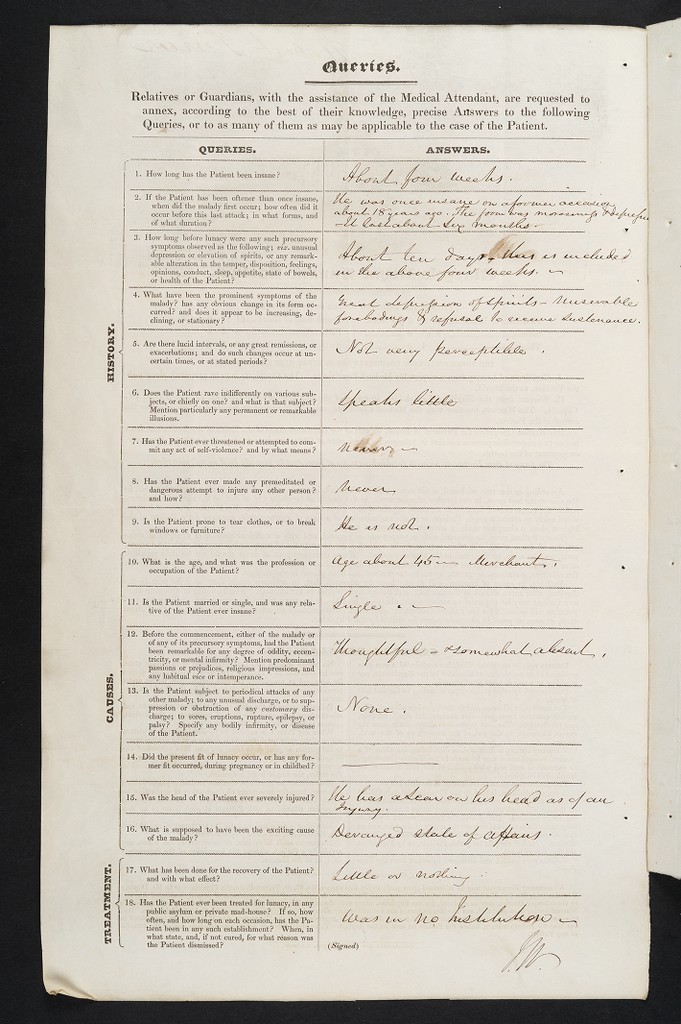 Queries.
Relatives or Guardians, with the assistance of the Medical Attendant, are requested to
annex, according to the best of their knowledge, precise Answers to the following
Queries, or to as many of them as may be applicable to the case of the Patient.
QUERIES.
ANSWERS.
HISTORY.
1. How long has the Patient been insane?
About four weeks.
2. If the Patient has been oftener than once insane,
when did the malady first occur; how often did it
occur before this last attack; in what forms, and
of what duration?
He was once insane on a former occasion
about 18 years ago. The form was moroseness & depression
It last about six months.
3. How long before lunacy were any such precursory
symptoms observed as the following; viz. unusual
depression or elevation of spirits, or any remark-
able alteration in the temper, disposition, feelings,
opinions, conduct, sleep, appetite, state of bowels,
or health of the Patient?
About ten days, this is included
in the above four weeks.
4. What have been the prominent symptoms of the
malady? has any obvious change in its form oc-
curred? and does it appear to be increasing, de-
clining, or stationary?
Great depression of spirits - miserable
forebodings & refusal to receive sustenance.
5. Are there lucid intervals, or any great remissions, or
exacerbations; and do such changes occur at un-
certain times, or at stated periods?
Not very perceptible.
6. Does the Patient rave indifferently on various sub-
jects, or chiefly on one? and what is that subject?
Mention particularly any permanent or remarkable
illusions.
Speaks little
7. Has the Patient ever threatened or attempted to com-
mit any act of self-violence? and by what means?
never
8. Has the Patient ever made any premeditated or
dangerous attempt to injure any other person?
and how?
never
9. Is the Patient prone to tear clothes, or to break
windows or furniture?
He is not.
CAUSES.
10. What is the age, and what was the profession or
occupation of the Patient?
Age about 45 - Merchant.
11. Is the Patient married or single, and was any rela-
tive of the Patient ever insane?
Single.
12. Before the commencement, either of the malady or
of any of its precursory symptoms, had the Patient
been remarkable for any degree of oddity, eccen-
tricity, or mental infirmity? Mention predominant
passions or prejudices, religious impressions, and
any habitual vice or intemperance.
Thoughtful - & somewhat absent.
13. Is the Patient subject to periodical attacks of any
other malady; to any unusual discharge, or to sup-
pression or obstruction of any customary dis-
charge; to sores, eruptions, rupture, epilepsy, or
palsy? Specify any bodily infirmity, or disease
of the Patient.
None.
14. Did the present fit of lunacy occur, or has any for-
mer fit occurred, during pregnancy or in childbed?
15. Was the head of the Patient ever severely injured?
He has a scar on his head as of an
Injury.
16. What is supposed to have been the exciting cause
of the malady?
Deranged state of affairs.
TREATMENT.
17. What has been done for the recovery of the Patient?
and with what effect?
Little or nothing.
18. Has the Patient ever been treated for lunacy, in any
public asylum or private mad-house? If so, how
often, and how long on each occasion, has the Pa-
tient been in any such establishment? When, in
what state, and, if not cured, for what reason was
the Patient dismissed?
Was in no Institution
(Signed)
J.W.